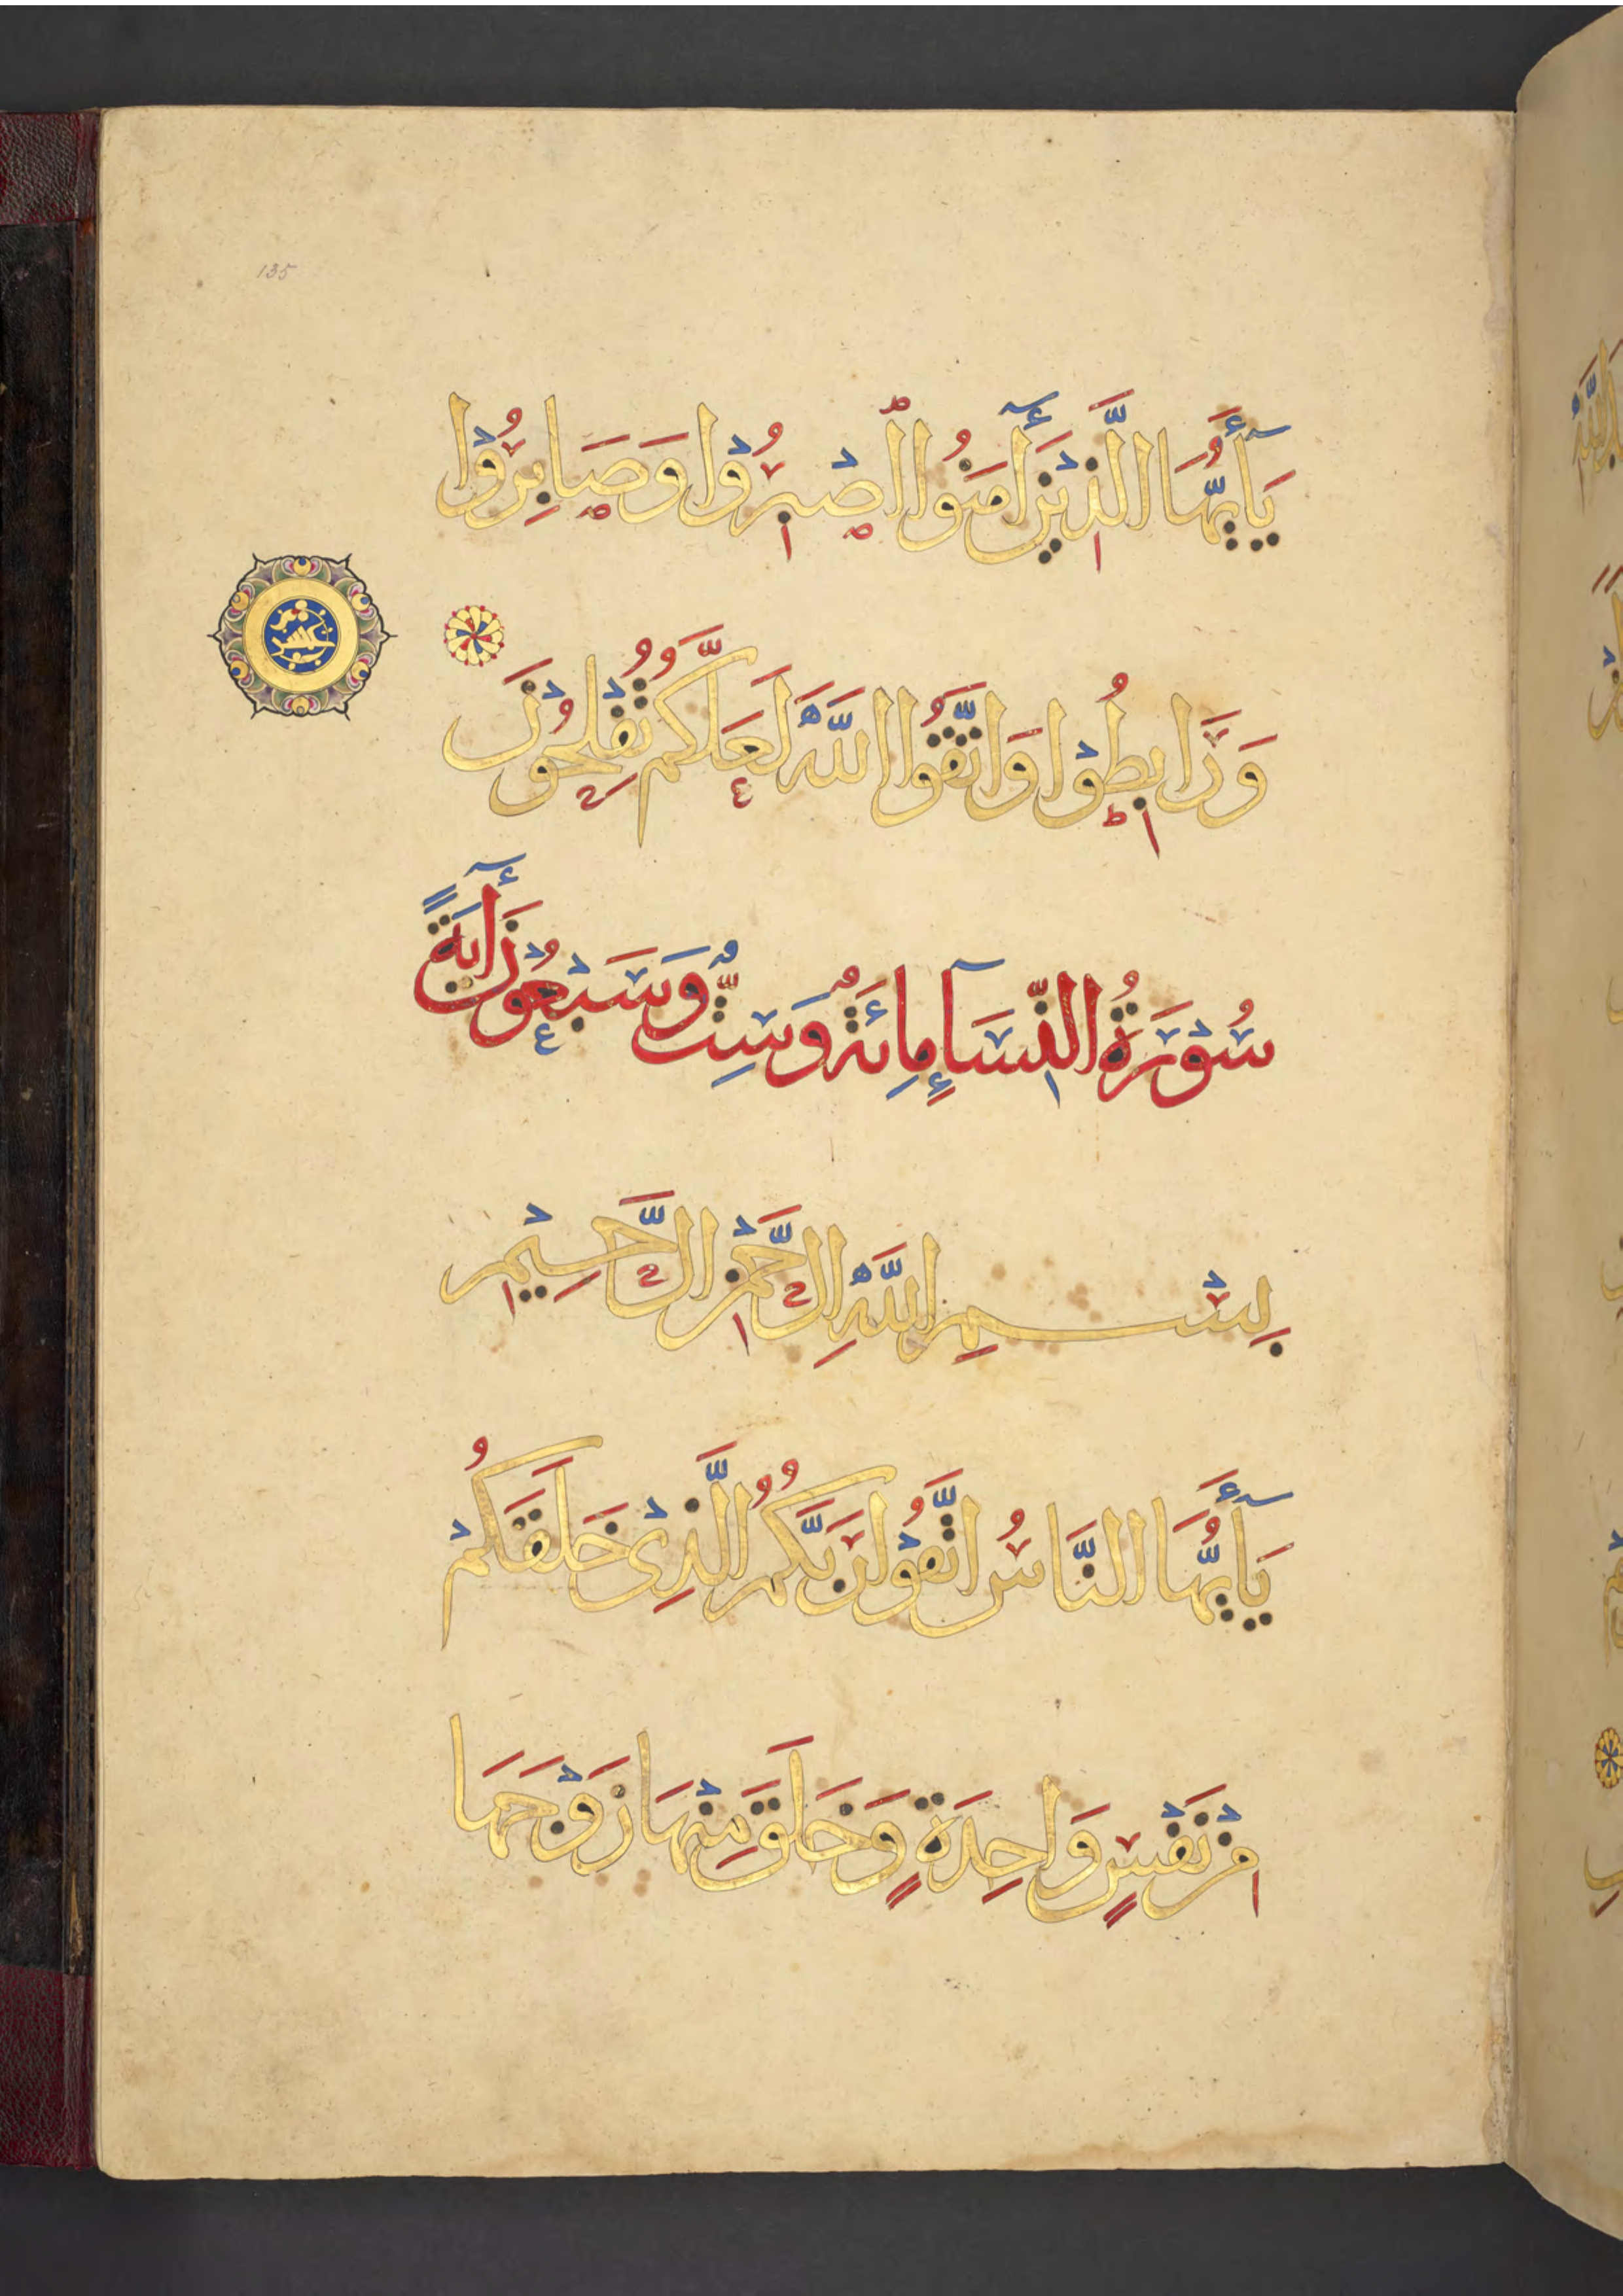 135
يَٰٓأَيُّهَا الَّذِيْنَ أٰمَنُوا اصْبِرُوْا وَصَابِرُوْا
وَرَابِطُوْا وَاتَّقُوا اللَّهَ لَعَلَّكُمْ تُفْلِحُوْنَ
سُوْرَةُ النِّسَآءِ مِائَةٌ وَسِتٌّ وَسَبْعُوْنَ أٰيَةً
بِسْمِ اللَّهِ الرَّحْمٰنِ الرَّحِيْمِ
يَٰٓأَيُّهَا النَّاسُ اتَّقُوْا رَبَّكُمُ الَّذِى خَلَقَكُمْ
مِنْ نَفْسٍ وَاحِدَةٍ وَخَلَقَ مِنْهَا زَوْجَهَا